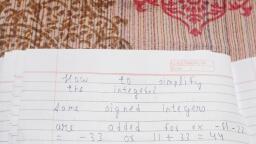 How to simplify
the integers!
Same signed integers
are added for ex -11-22
= -33 or 11 + 33 = 44